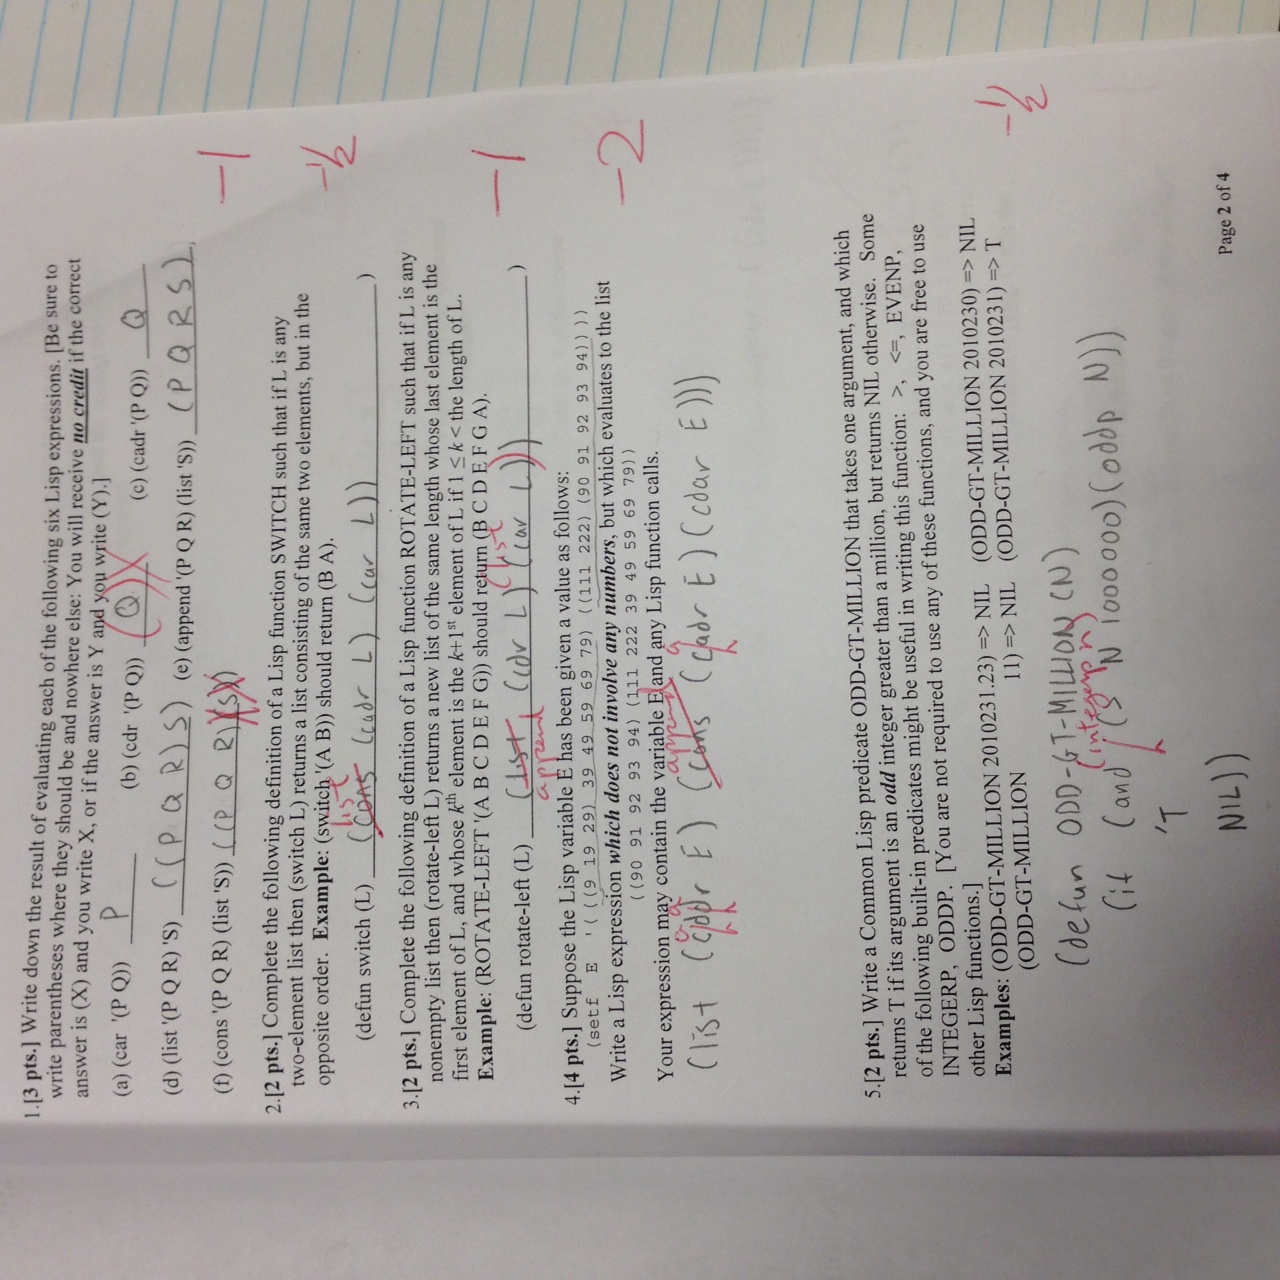 1.[3 pts.] Write down the result of evaluating each of the following six Lisp expressions. [Be sure to
write parentheses where they should be and nowhere else: You will receive no credit if the correct
answer is (X) and you write X, or if the answer is Y and you write (Y).]
(a) (car '(P Q)) P (b) (cdr '(P Q)) (Q) X (c) (cadr '(P Q)) Q
(d) (list '(P Q R) 'S) ((P Q R) S) (e) (append '(P Q R) (list 'S)) (P Q R S)
(f) (cons '(P Q R) (list 'S)) ((P Q R) (S))
-1
2.[2 pts.] Complete the following definition of a Lisp function SWITCH such that if L is any
two-element list then (switch L) returns a list consisting of the same two elements, but in the
opposite order. Example: (switch '(A B)) should return (B A).
-½
list
(defun switch (L) (cons (cadr L) (car L)) )
3.[2 pts.] Complete the following definition of a Lisp function ROTATE-LEFT such that if L is any
nonempty list then (rotate-left L) returns a new list of the same length whose last element is the
first element of L, and whose kth element is the k+1st element of L if 1 ≤ k < the length of L.
Example: (ROTATE-LEFT '(A B C D E F G)) should return (B C D E F G A).
-1
(list
(defun rotate-left (L) (list (cdr L) (car L))) )
append
4.[4 pts.] Suppose the Lisp variable E has been given a value as follows:
(setf E '( ((9 19 29) 39 49 59 69 79) ((111 222) (90 91 92 93 94)) ))
Write a Lisp expression which does not involve any numbers, but which evaluates to the list
-2
((90 91 92 93 94) (111 222 39 49 59 69 79))
Your expression may contain the variable E and any Lisp function calls.
a a append a
(list (cddr E) (cons (cadr E) (cdar E)))
5.[2 pts.] Write a Common Lisp predicate ODD-GT-MILLION that takes one argument, and which
returns T if its argument is an odd integer greater than a million, but returns NIL otherwise. Some
of the following built-in predicates might be useful in writing this function: >, <=, EVENP,
INTEGERP, ODDP. [You are not required to use any of these functions, and you are free to use
other Lisp functions.]
Examples: (ODD-GT-MILLION 2010231.23) => NIL (ODD-GT-MILLION 2010230) => NIL
(ODD-GT-MILLION 11) => NIL (ODD-GT-MILLION 2010231) => T
-½
(defun ODD-GT-MILLION (N)
(integerp n)
(if (and (> N 1000000) (oddp N))
'T
NIL))
Page 2 of 4